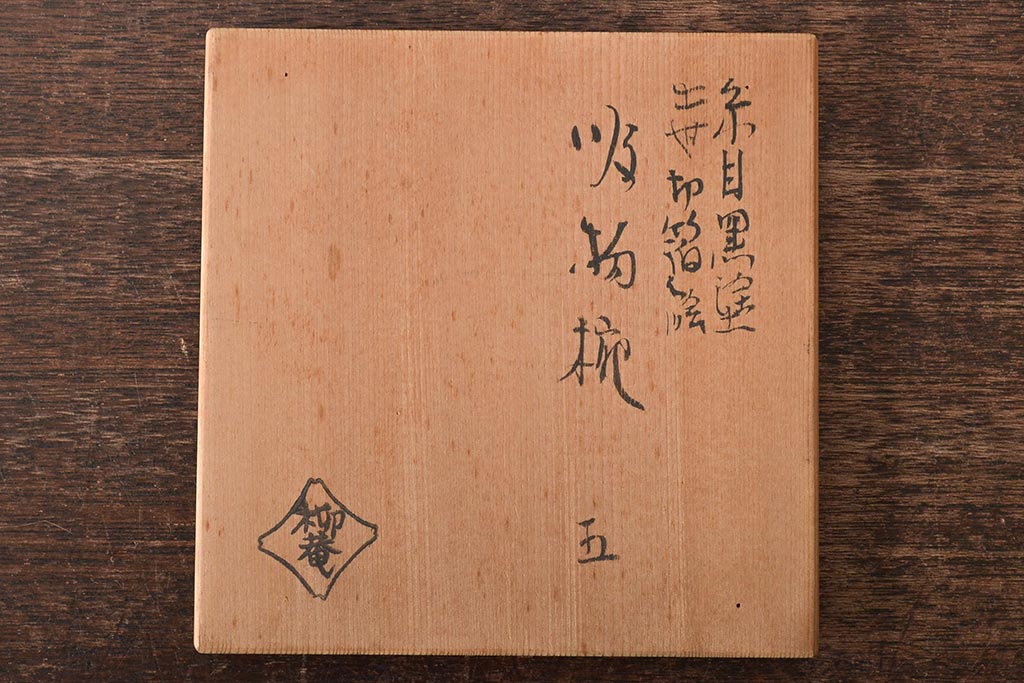 糸目黒塗
切箔之絵
吸物椀 五
柳菴